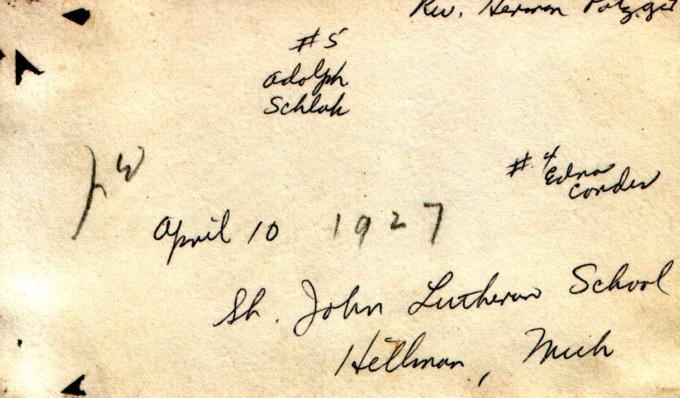 Rev. Herman
#5
Adolph
Schlak
#4 Edna
Cordes
April 10 1927
St. John Lutheran School
Hillman, Mich